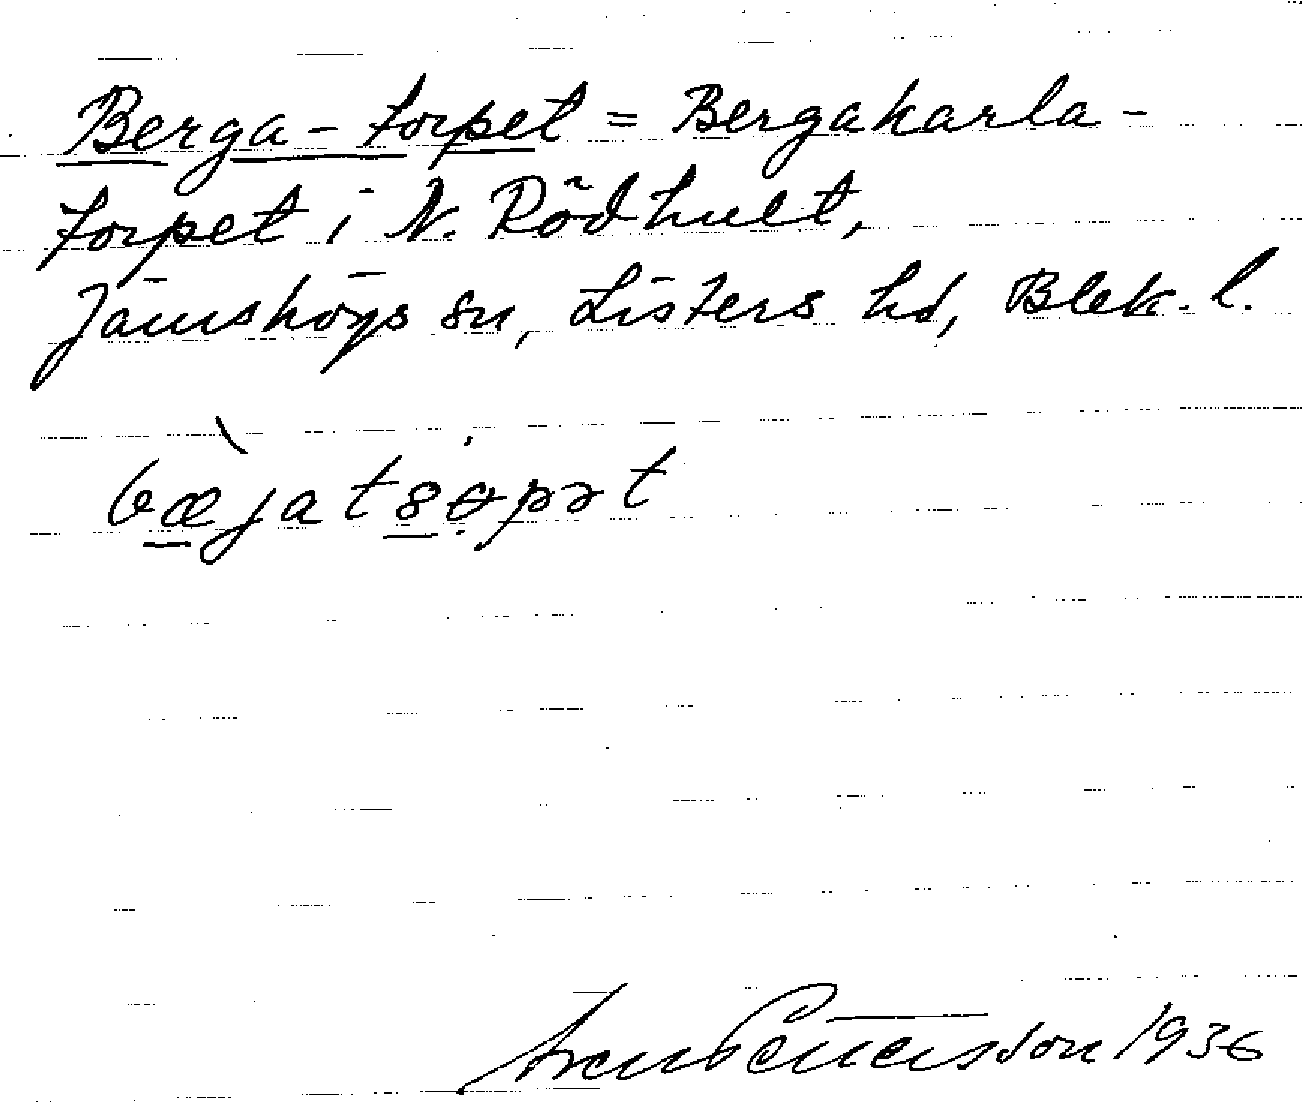 Berga-torpet = Bergakarla-
torpet i N. Rödhult,
Jämshögs sn, Listers hd, Blek. l.
bæjatsɵpət
Pettersson 1936